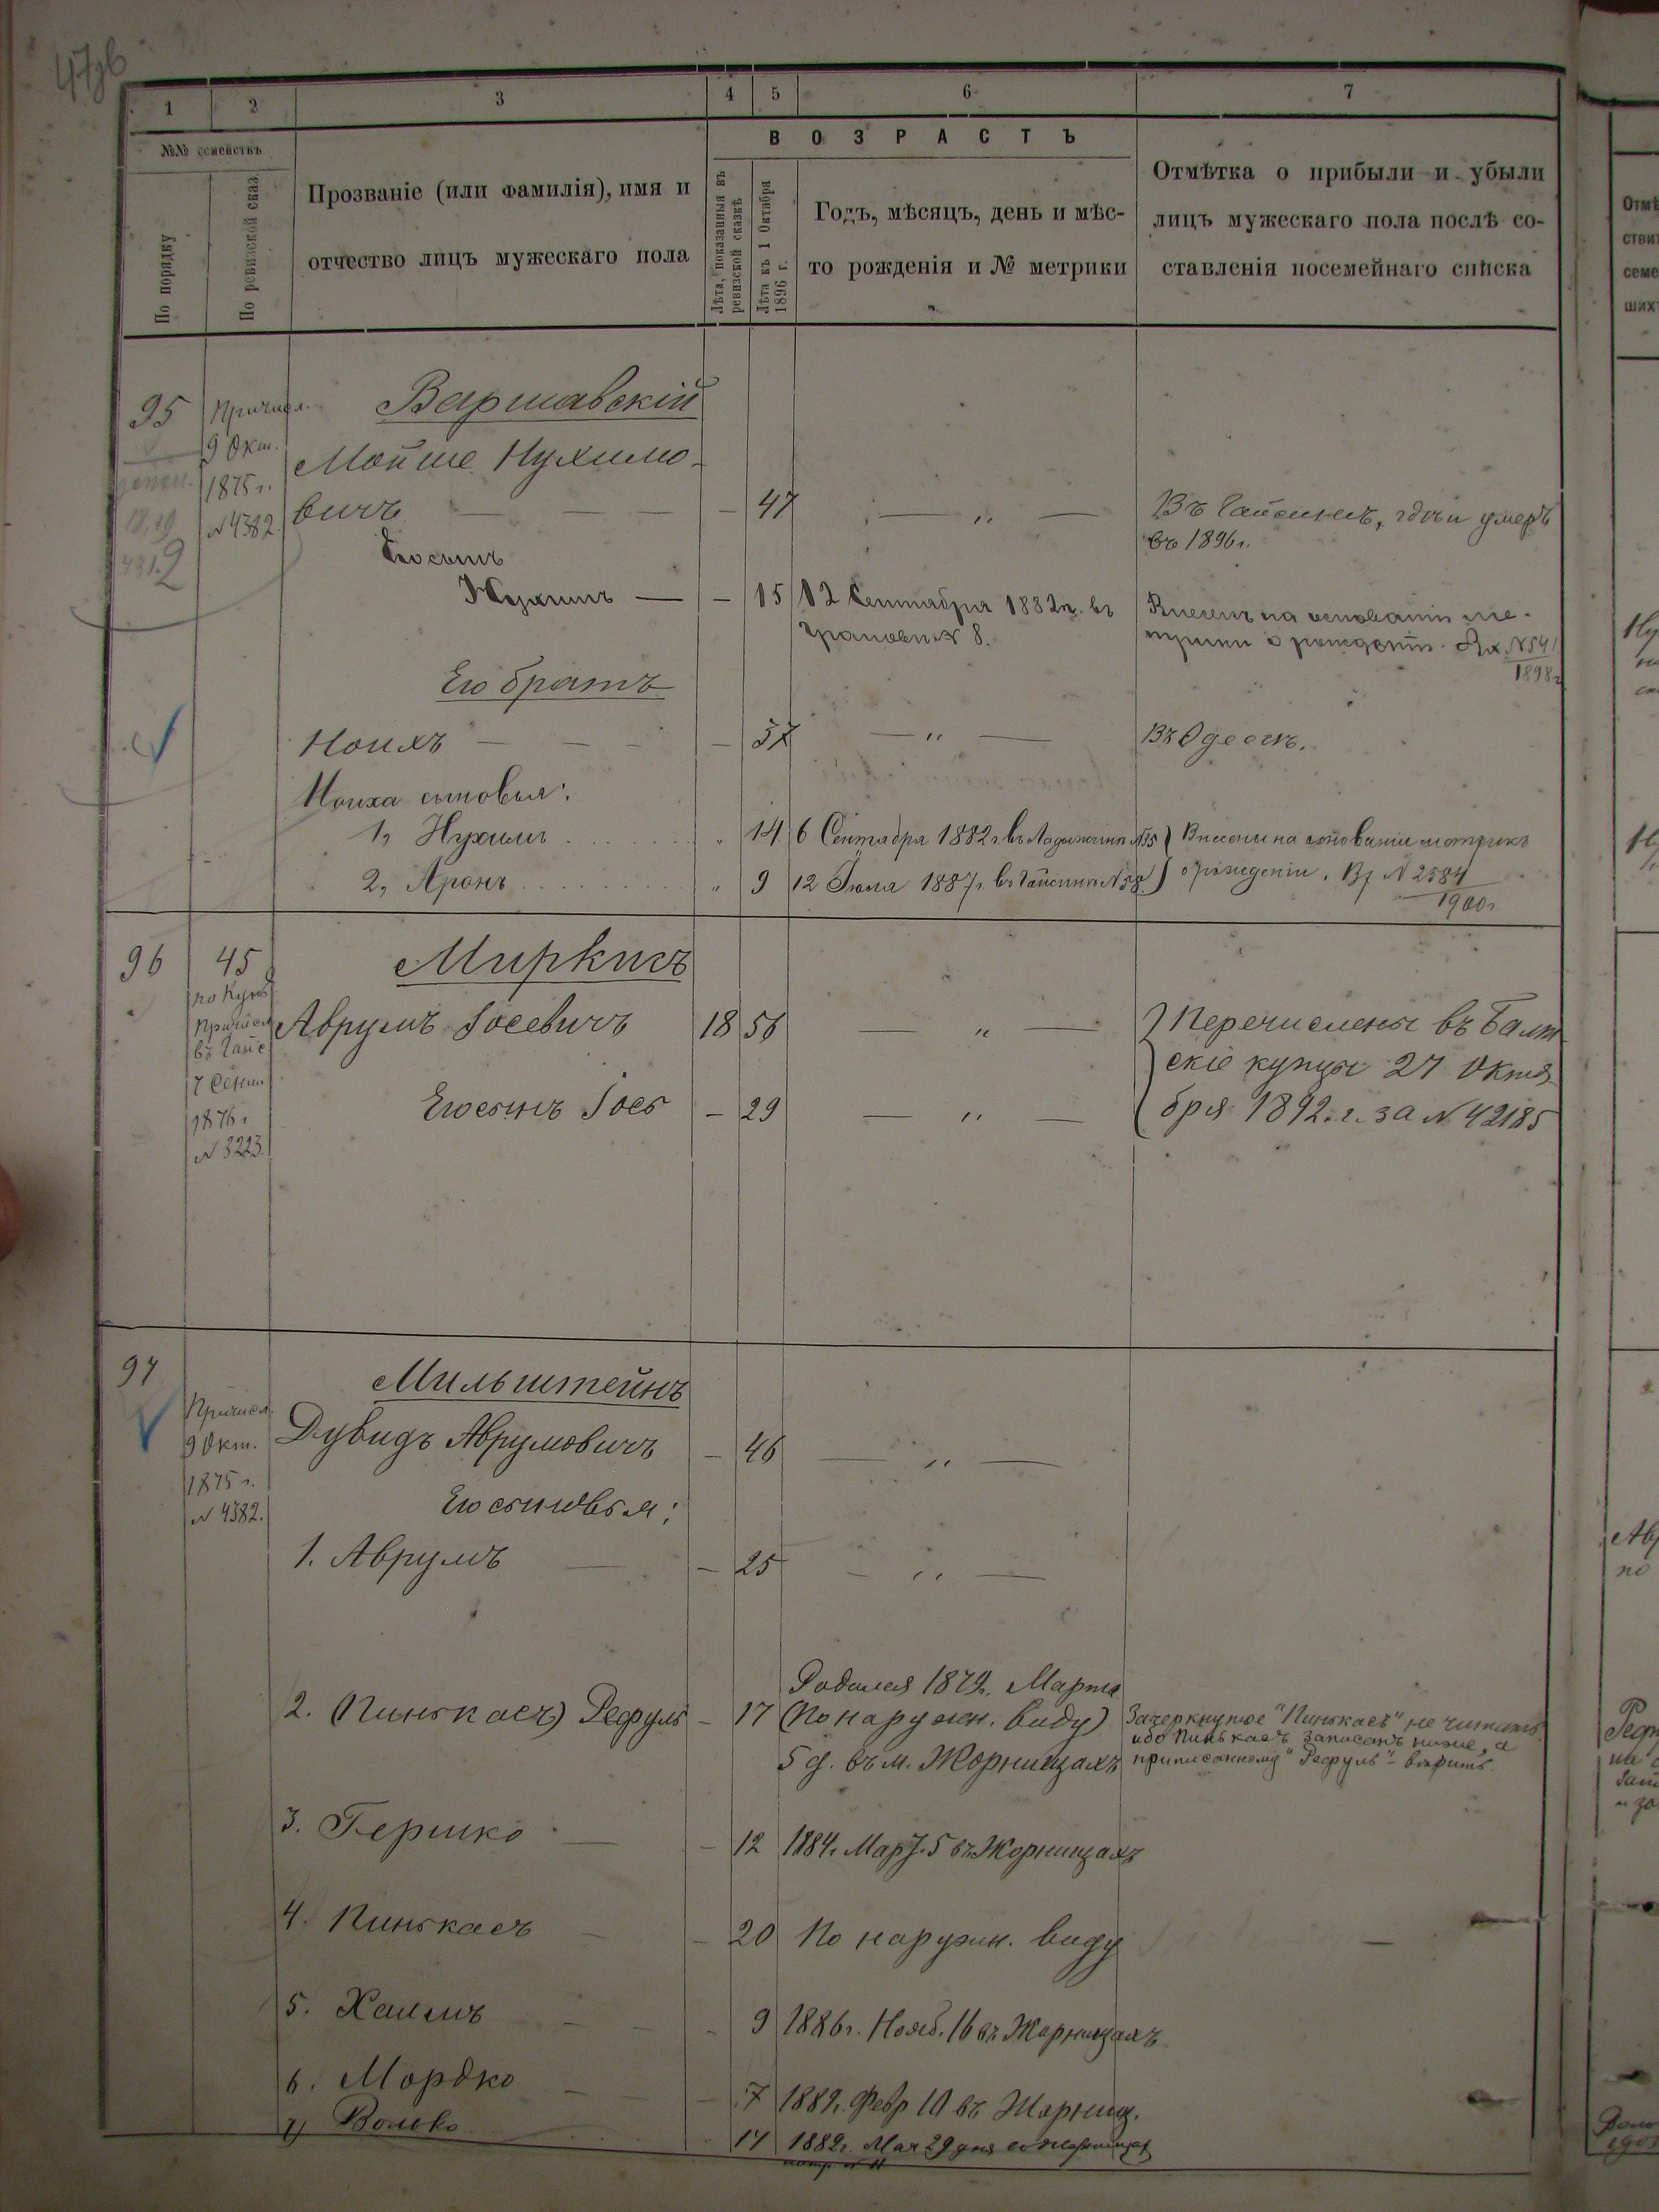 47об
1 2 3 4 5 6 7
№№ семействъ
По порядку
По ревизской сказ.
Прозваніе (или фамилія), имя и
отчество лицъ мужескаго пола
ВОЗРАСТЪ
Лѣта, показанныя въ
ревизской сказкѣ
Лѣта къ 1 Октября
1896 г.
Годъ, мѣсяцъ, день и мѣс-
то рожденія и № метрики
Отмѣтка о прибыли и убыли
лицъ мужескаго пола послѣ со-
ставленія посемейнаго списка
95 Причисл. Варшавскій
9 Окт.
1875 г.
№ 4382.
Мойше Нухимо-
вичъ — — — — 47 — „ — Въ Гайсинѣ, гдѣ и умеръ
въ 1896 г.
Его сынъ
Нухимъ — — 15 12 Сентября 1882 г. въ
Грановѣ № 8.
Внесенъ на основаніи ме-
трики о рожденіи. Вх. № 541
1898 г.
Его братъ
Ноихъ — — — — 37 — „ — Въ Одессѣ.
Ноиха сыновья:
1, Нухимъ „ 14 6 Сентября 1882 г. въ Ладыжинѣ №55 ) Внесены на основаніи метрикъ
2, Аронъ „ 9 12 Іюля 1887 г. въ Гайсинѣ №58 ) о рожденіи. Вх. № 2584
1900 г.
96 45 Миркисъ
по Куп.
Причисл.
въ Гайс.
7 Сент.
1876 г.
№ 3223.
Аврумъ Іосевичъ 18 56 — „ — Перечислены въ Балт
скіе купцы 27 Октя
Его сынъ Іось — 29 — „ — бря 1892 г. за № 42185
97 Мильштейнъ
Причисл.
9 Окт.
1875 г.
№ 4382.
Дувидъ Аврумовичъ — 46 — „ —
Его сыновья:
1. Аврумъ — — 25 — „ —
2. (Пинькасъ) Рефуль — 17
Родился 1879. Марта
(По наружн. виду)
5 д. въ м. Жорнищахъ
Зачеркнутое "Пинькасъ" не читать
ибо Пинькасъ записанъ ниже, а
приписанному "Рефуль" - вѣрить.
3. Гершко — — 12 1884. Мар. 5 въ Жорнищахъ
4. Пинькасъ — — 20 По наружн. виду —
5. Хаимъ — — - 9 1886 г. Нояб. 16 въ Жорнищахъ
6. Мордко — — — 7 1889. Февр 10 въ Жорнищ.
7) Волько 14 1882 г. Мая 29 дня въ Жорнищах
метр. № 11